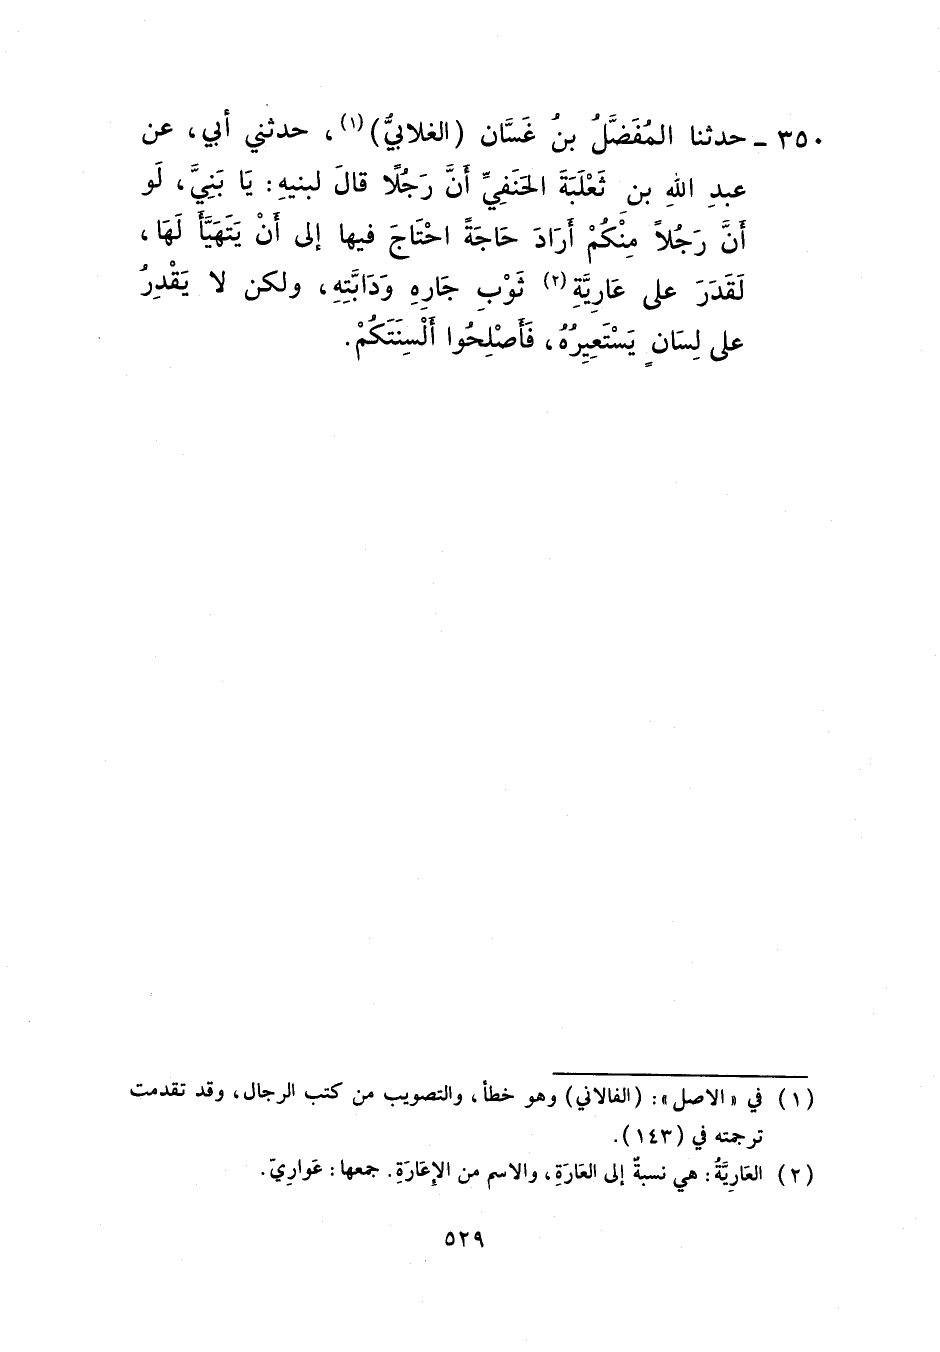 ٣٥٠ ـ حدثنا المُفَضَّلُ بنُ غَسَّان (الغلابيُّ)(١)، حدثني أبي، عن
عبدِ اللهِ بنِ ثَعْلَبَةَ الحَنَفِيِّ أَنَّ رَجُلًا قالَ لبنيهِ: يَا بَنِيَّ، لَو
أَنَّ رَجُلاً مِنْكُمْ أَرَادَ حَاجَةً احْتَاجَ فيها إلى أَنْ يَتَهَيَّأَ لَهَا،
لَقَدَرَ على عَارِيَّةِ(٢) ثَوْبِ جَارِهِ وَدَابَّتِهِ، ولكن لا يَقْدِرُ
على لِسَانٍ يَسْتَعِيرُهُ، فَأَصْلِحُوا أَلْسِنَتَكُمْ.
(١) في «الاصل»: (الفالاني) وهو خطأ، والتصويب من كتب الرجال، وقد تقدمت
ترجمته في (١٤٣).
(٢) العَارِيَّةُ: هي نسبةٌ إلى العَارَةِ، والاسم من الإِعَارَةِ. جمعها: عَوارِيّ.
٥٢٩